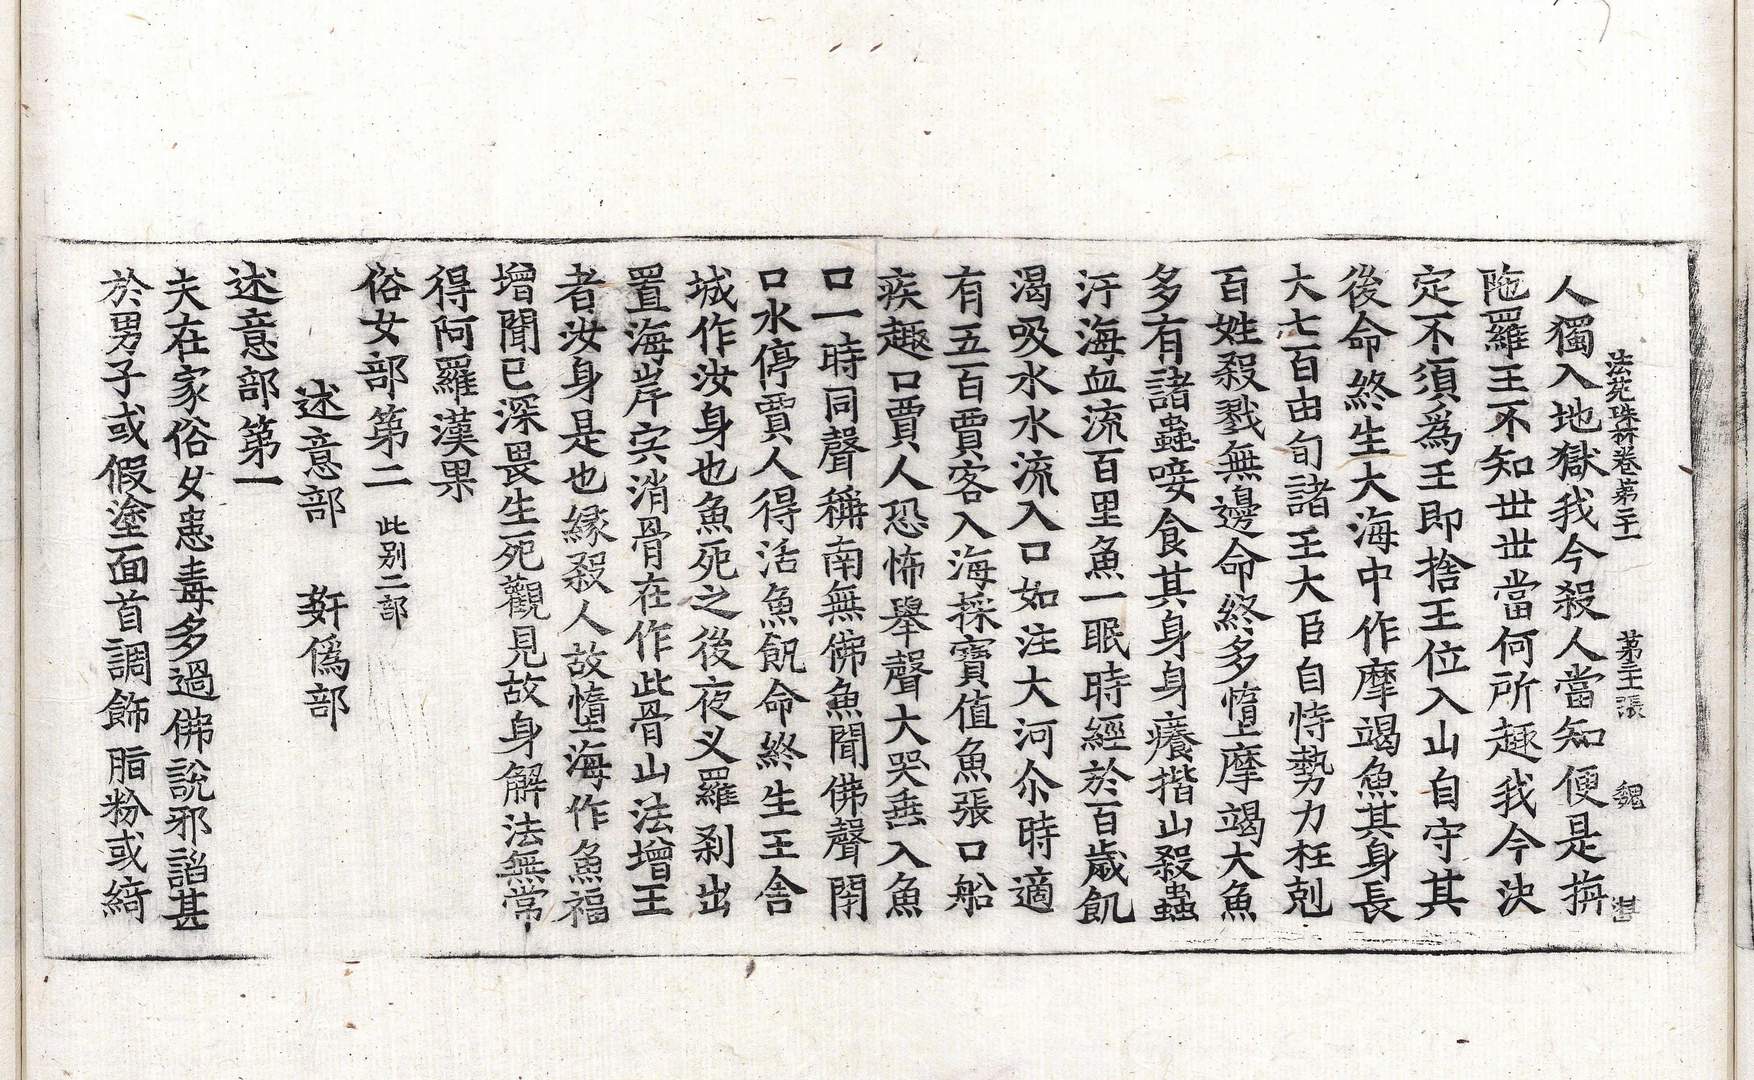 法苑珠林卷第二十一 第三十一張 魏 甚
人獨入地獄我今殺人當知便是旃
陁羅王不知丗丗當何所趣我今決
定不須爲王即捨王位入山自守其
後命終生大海中作摩竭魚其身長
大七百由旬諸王大臣自恃勢力枉剋
百姓殺戮無邊命終多墮摩竭大魚
多有諸蟲唼食其身身癢揩山殺蟲
汙海血流百里魚一眠時經於百歲飢
渴吸水水流入口如注大河尒時適
有五百賈客入海採寶值魚張口船
疾趣口賈人恐怖舉聲大哭垂入魚
口一時同聲稱南無佛魚聞佛聲閉
口水停賈人得活魚飢命終生王舍
城作汝身也魚死之後夜叉羅剎出
置海岸肉消骨在作此骨山法增王
者汝身是也緣殺人故墮海作魚福
增聞已深畏生死觀見故身解法無常
得阿羅漢果
俗女部第二 此別二部
述意部 姧僞部
述意部第一
夫在家俗女患毒多過佛說邪諂甚
於男子或假塗面首調飾脂粉或綺